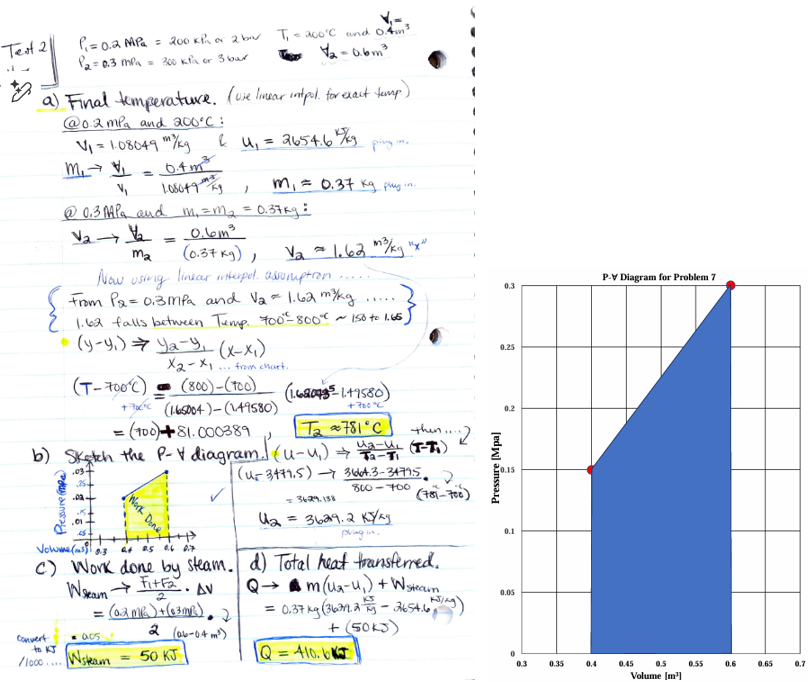 Test 2
P₁ = 0.2 MPa = 200 kPa or 2 bar T₁ = 200°C and V₁ = 0.4m³
P₂ = 0.3 mPa = 300 kPa or 3 bar V₂ = 0.6m³
a) Final temperature. (use linear intpol. for exact temp)
@0.2 mPa and 200°C:
V₁ = 1.08049 m³/kg & u₁ = 2654.6 KJ/kg plug in.
m₁ → V₁/v₁ = 0.4m³/1.08049 m³/kg , m₁ ≈ 0.37 kg plug in.
@ 0.3MPa and m₁=m₂ = 0.37kg:
V₂ → V₂/m₂ = 0.6m³/(0.37 kg) , V₂ ≈ 1.62 m³/kg "x"
Now using linear interpol. assumption .....
From P₂= 0.3mPa and V₂ ≈ 1.62 m³/kg .....
1.62 falls between Temp. 700°C-800°C ~ 150 to 1.65
(y-y₁) ⇒ y₂-y₁/x₂-x₁ (x-x₁)
... from chart.
(T-700°C) = (800)-(700)/(1.65004)-(1.49580) (1.62073⁵-1.49580)
+700°C +700°C
= (700)+81.000389 , T₂ ≈781°C
b) Sketch the P-V diagram.
then....
(u-u₁) ⇒ u₂-u₁/T₂-T₁ (T-T₁)
(u-3479.5) → 3664.3-3479.5/800-700 • (781-700)
= 3629.188
u₂ = 3629.2 KJ/kg
plug in.
Pressure (MPa)
.03
.02
.01
0
Work Done
Volume (m³) 0.3 0.4 0.5 0.6 0.7
c) Work done by steam.
Wsteam → F₁+F₂/2 • ΔV
= (0.2 mPa)+(0.3mPa)/2 • (0.6-0.4 m³)
convert to KJ /1000 .... = 0.05
Wsteam = 50 KJ
d) Total heat transferred.
Q → m(u₂-u₁) + Wsteam
= 0.37 kg (3629.2 KJ/kg - 2654.6 KJ/kg)
+ (50KJ)
Q = 410.6 KJ
P-V Diagram for Problem 7
Pressure [Mpa]
0.3
0.25
0.2
0.15
0.1
0.05
0
0.3 0.35 0.4 0.45 0.5 0.55 0.6 0.65 0.7
Volume [m³]